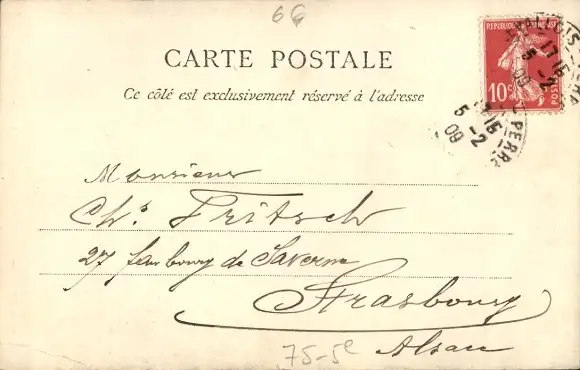 66
CARTE POSTALE
Ce côlé est exclusivement réservé à l'adresse
RÉPUBLIQUE FRANÇAISE
10c
LEVALLOIS-PERRET
17 15
5 -2
09
17 15
5 -2
09
PERRE
Monsieur
Chs. Fritsch
27 faubourg de Saverne
Strasbourg
Alsace
75-5e